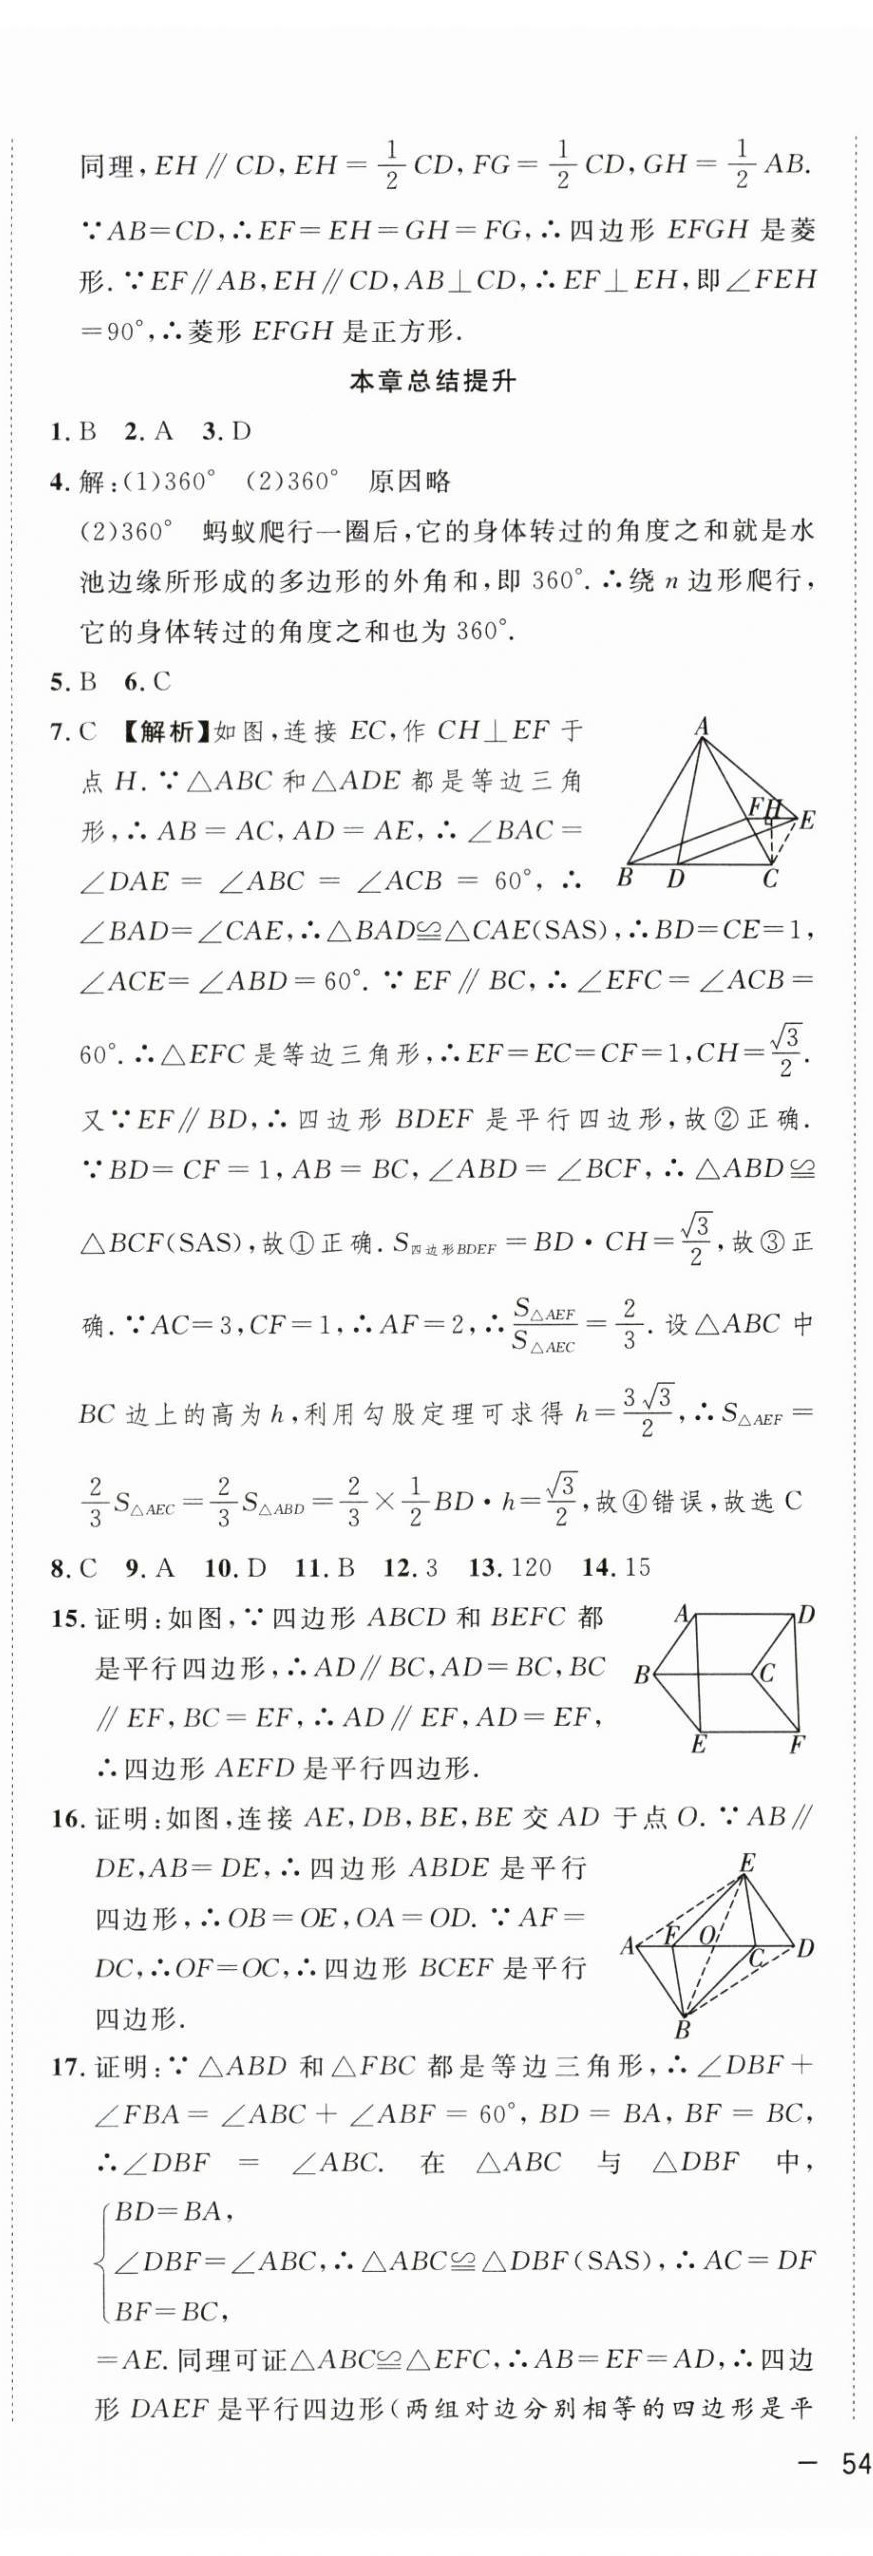 同理,EH∥CD,EH=1/2CD,FG=1/2CD,GH=1/2AB.
∵AB=CD,∴EF=EH=GH=FG,∴四边形 EFGH 是菱
形.∵EF∥AB,EH∥CD,AB⊥CD,∴EF⊥EH,即∠FEH
=90°,∴菱形 EFGH 是正方形.
本章总结提升
1.B 2.A 3.D
4.解:(1)360° (2)360° 原因略
(2)360° 蚂蚁爬行一圈后,它的身体转过的角度之和就是水
池边缘所形成的多边形的外角和,即 360°.∴绕 n 边形爬行,
它的身体转过的角度之和也为 360°.
5.B 6.C
7.C 【解析】如图,连接 EC,作 CH⊥EF 于
点 H.∵△ABC 和△ADE 都是等边三角
形,∴AB=AC,AD=AE,∴∠BAC=
∠DAE=∠ABC=∠ACB=60°,∴
∠BAD=∠CAE,∴△BAD≌△CAE(SAS),∴BD=CE=1,
∠ACE=∠ABD=60°.∵EF∥BC,∴∠EFC=∠ACB=
60°.∴△EFC 是等边三角形,∴EF=EC=CF=1,CH=√3/2.
又∵EF∥BD,∴四边形 BDEF 是平行四边形,故②正确.
∵BD=CF=1,AB=BC,∠ABD=∠BCF,∴△ABD≌
△BCF(SAS),故①正确.S四边形BDEF=BD·CH=√3/2,故③正
确.∵AC=3,CF=1,∴AF=2,∴S△AEF/S△AEC=2/3.设△ABC 中
BC 边上的高为 h,利用勾股定理可求得 h=3√3/2,∴S△AEF=
2/3S△AEC=2/3S△ABD=2/3×1/2BD·h=√3/2,故④错误,故选 C
A
F H E
B D C
8.C 9.A 10.D 11.B 12.3 13.120 14.15
15.证明:如图,∵四边形 ABCD 和 BEFC 都
是平行四边形,∴AD∥BC,AD=BC,BC
∥EF,BC=EF,∴AD∥EF,AD=EF,
∴四边形 AEFD 是平行四边形.
A D
B C
E F
16.证明:如图,连接 AE,DB,BE,BE 交 AD 于点 O.∵AB∥
DE,AB=DE,∴四边形 ABDE 是平行
四边形,∴OB=OE,OA=OD.∵AF=
DC,∴OF=OC,∴四边形 BCEF 是平行
四边形.
E
A F O C D
B
17.证明:∵△ABD 和△FBC 都是等边三角形,∴∠DBF+
∠FBA=∠ABC+∠ABF=60°,BD=BA,BF=BC,
∴∠DBF=∠ABC.在△ABC 与△DBF 中,
BD=BA,
∠DBF=∠ABC,∴△ABC≌△DBF(SAS),∴AC=DF
BF=BC,
=AE.同理可证△ABC≌△EFC,∴AB=EF=AD,∴四边
形 DAEF 是平行四边形(两组对边分别相等的四边形是平
— 54